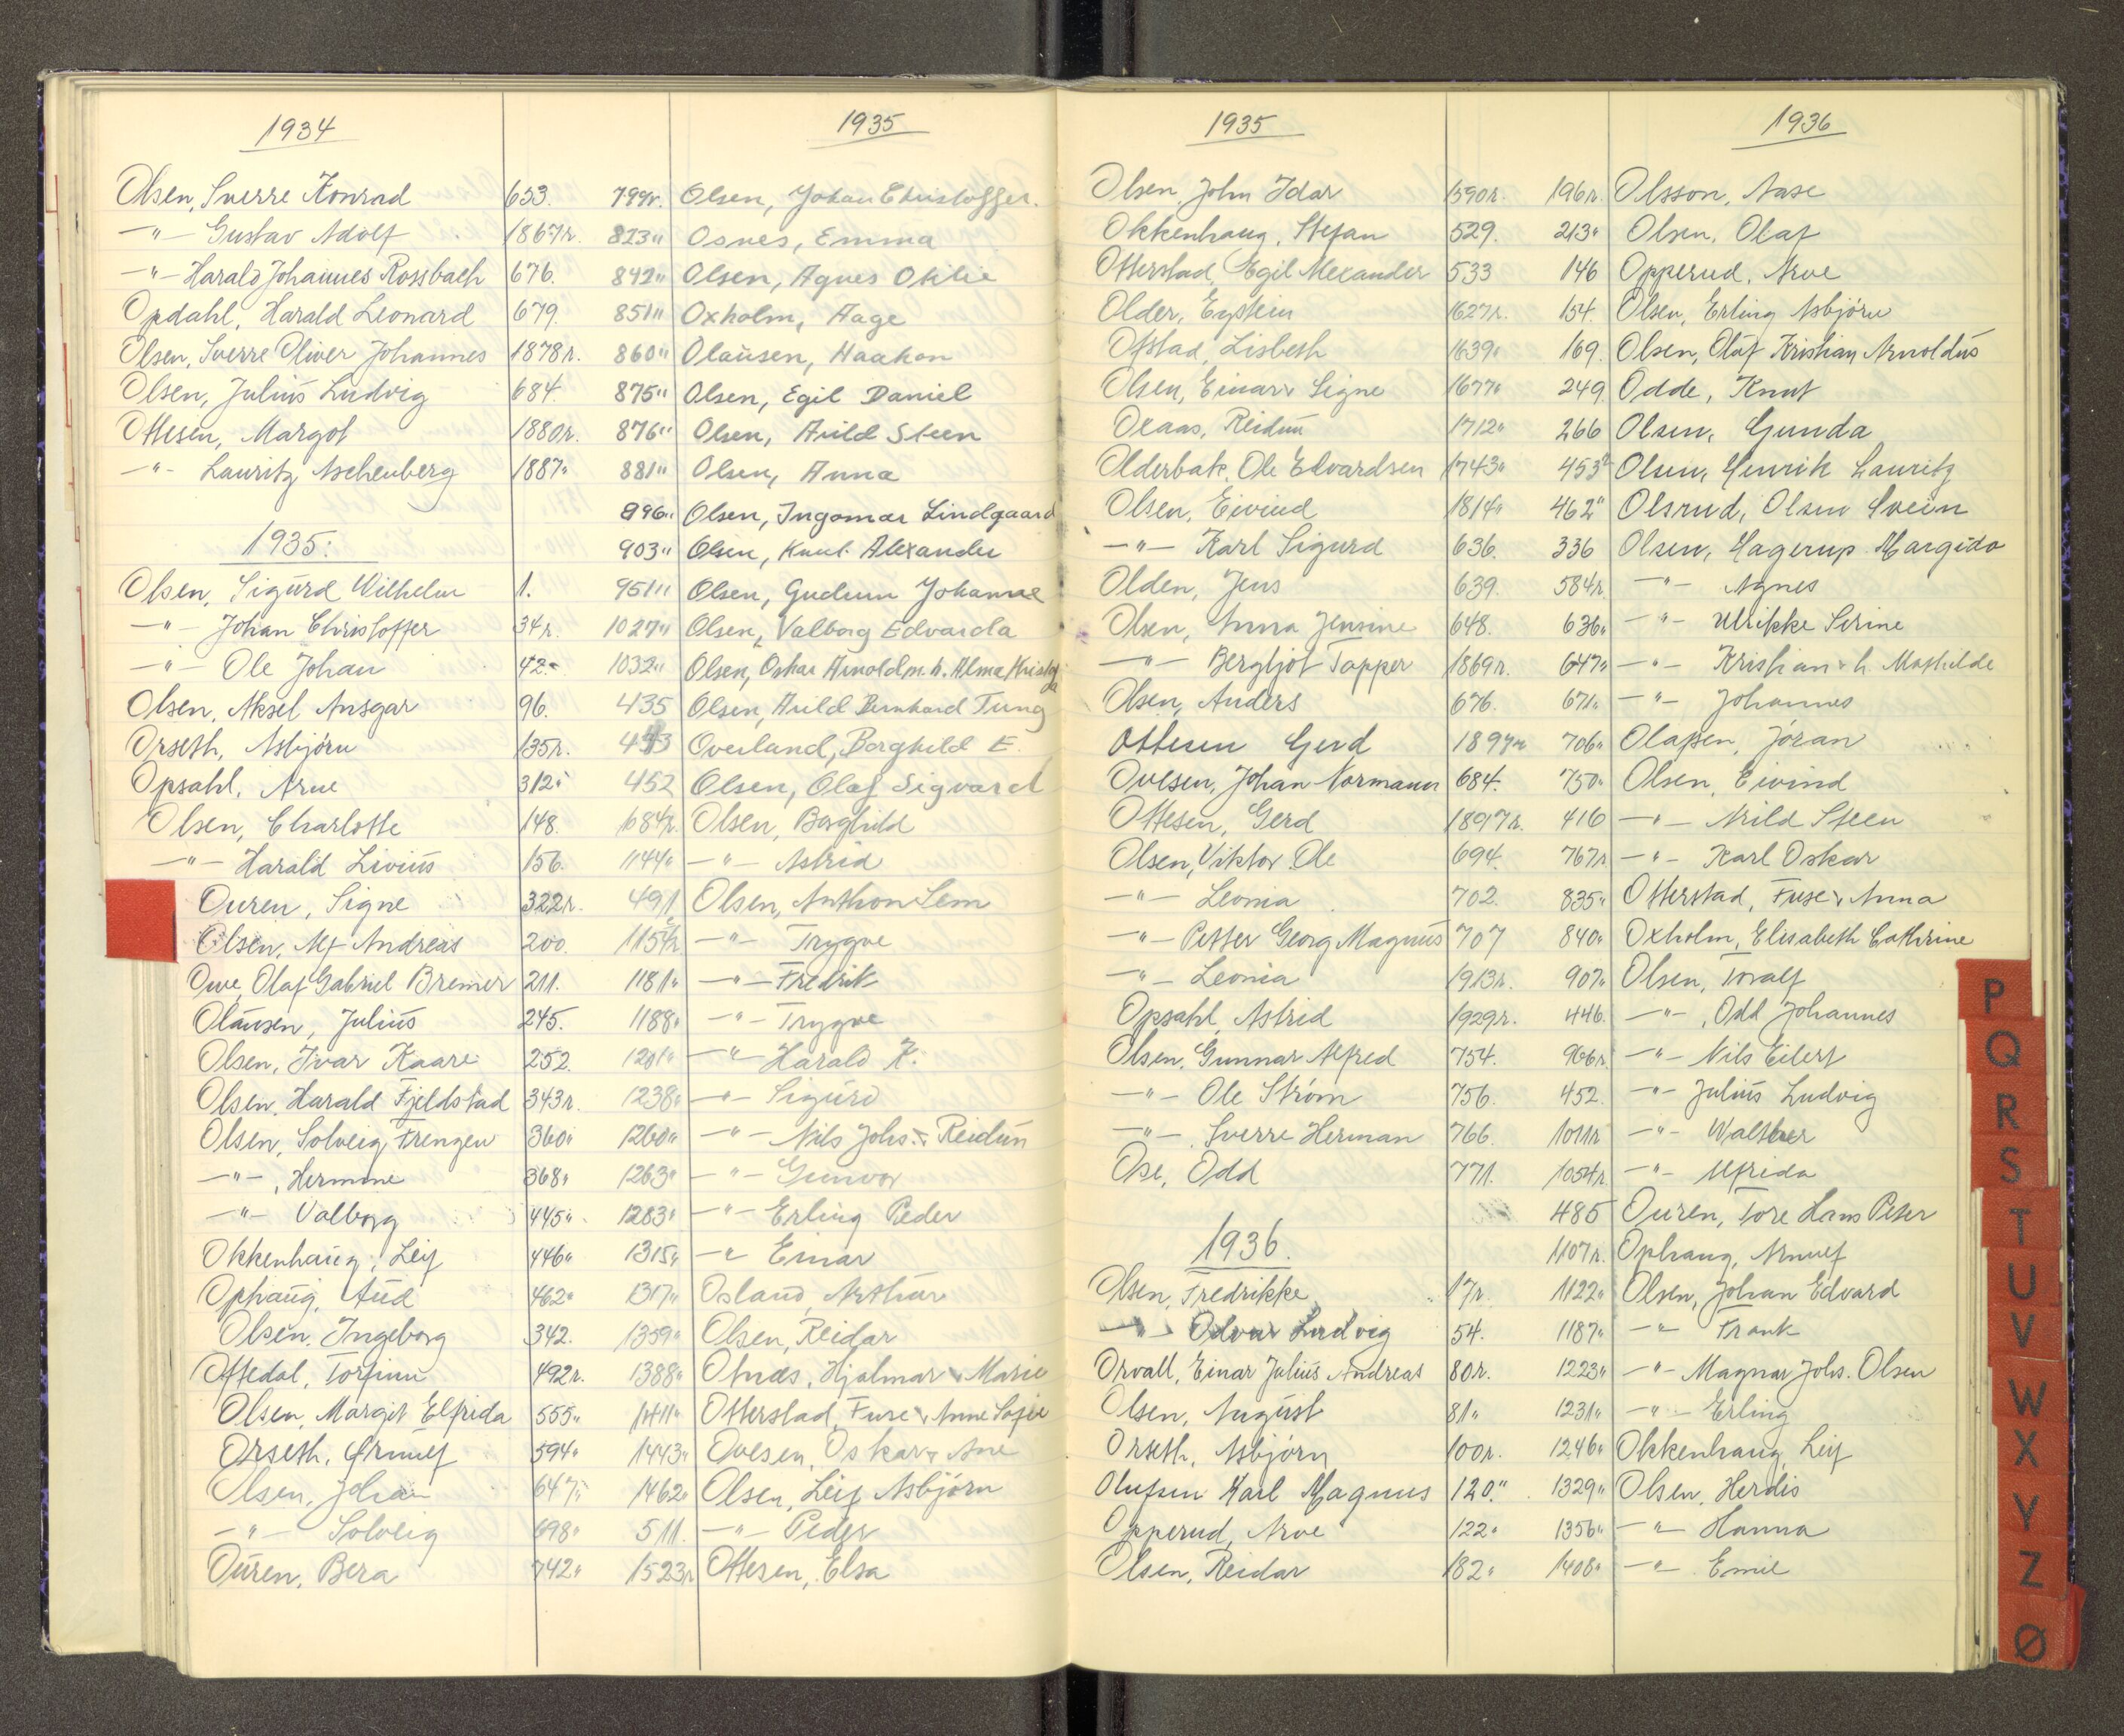 1934
Olsen, Sverre Konrad 653.
-"- Gustav Adolf 1867r.
-"- Harald Johannes Rossbach 676.
Opdahl, Harald Leonard 679.
Olsen, Sverre Oliver Johannes 1878r.
Olsen, Julius Ludvig 684.
Ottesen, Margot 1880r.
-"- Lauritz Aschenberg 1887"
1935:
Olsen, Sigurd Wilhelm 1.
-"- Johan Christoffer 34r.
-"- Ole Johan 42"
Olsen, Aksel Ansgar 96.
Orseth, Asbjørn 135r.
Opsahl, Arne 312"
Olsen, Charlotte 148.
-"- Harald Livius 156.
Ouren, Signe 322r.
Olsen, Alf Andreas 200.
Owe, Olaf Gabriel Bremer 211.
Olausen, Julius 245.
Olsen, Ivar Kaare 252.
Olsen, Harald Fjeldstad 343r.
Olsen, Solveig Frengen 360"
-"-, Hermine 368"
-"- Valborg 445"
Okkenhaug, Leif 446"
Ophaug, Aud 462"
Olsen, Ingeborg 342.
Oftedal, Torfinn 492r.
Olsen, Margit Elfrida 555"
Orseth, Ørnulf 594"
Olsen, Johan 647"
-"- Solveig 698"
Ouren, Bera 742"
1935
799r. Olsen, Johan Christoffer.
823" Osnes, Emma
842" Olsen, Agnes Otilie
851" Oxholm, Aage
860" Olausen, Haakon
875" Olsen, Egil Daniel
876" Olsen, Arild Steen
881" Olsen, Anna
896" Olsen, Ingomar Lindgaard
903" Olsen, Knut Alexander
951" Olsen, Gudrun Johanne
1027" Olsen, Valborg Edvarda
1032" Olsen, Oskar Arnold m. h. Alma
435 Olsen, Arild Bernhard Tung
Overland, Borghild E.
452 Olsen, Olaf Sigvard
684r. Olsen, Borghild
1144" -"- Astrid
491 Olsen, Anthon Lem
-"- Trygve
1181" -"- Fredrik
1188" -"- Trygve
1201" -"- Harald K.
1238" -"- Sigurd
1260" -"- Nils Johs. & Reidun
1263" -"- Gunvor
1283" -"- Erling Peder
1315" -"- Einar
1317" Osland, Arthur
1359" Olsen, Reidar
1388" Otnæs, Hjalmar & Marie
1411" Otterstad, Fure & Anne Sofie
1443" Ovesen, Oskar & Ane
1462" Olsen, Leif Asbjørn
511. -"- Peder
1523r Ottesen, Elsa
1935
Olsen, John Idar 1590r.
Okkenhaug, Stefan 529.
Otterstad, Egil Alexander 533
Older, Eystein 1627r.
Opstad, Lisbeth 1639"
Olsen, Einar & Signe 1677"
Oxaas, Reidun 1712"
Olderbak, Ole Edvardsen 1743"
Olsen, Eivind 1814"
-"- Karl Sigurd 636.
Olden, Jens 639.
Olsen, Anna Jensine 648.
-"- Bergljot Tapper 1869r.
Olsen, Anders 676.
Ottesen Gerd 1897r
Ovesen, Johan Normann 684.
Ottesen, Gerd 1897r.
Olsen, Viktor Ole 694.
-"- Leonia 702.
-"- Petter Georg Magnus 707
-"- Leonia 1913r.
Opsahl, Astrid 1929r.
Olsen, Gunnar Alfred 754.
-"- Ole Strøm 756.
-"- Sverre Herman 766.
Ose, Odd 771.
1936.
Olsen, Fredrikke 17r.
-"- Ludvig 54.
Orvall, Einar Julius Andreas 80r.
Olsen, August 81"
Orseth, Asbjørn 100r.
Olufsen Karl Magnus 120."
Opperud, Arve 122"
Olsen, Reidar 182"
1936
196r. Olsson, Aase
213" Olsen, Olaf
146 Opperud, Arve
154. Olsen, Erling Asbjørn
169. Olsen, Olaf Kristian Arnoldus
249. Odde, Knut
266 Olsen, Gunda
453r Olsen, Henrik Lauritz
462" Olsrud, Olsen Svein
336 Olsen, Hagerup Margido
584r. -"- Agnes
636" -"- Ulrikke Serine
647" -"- Kristian & h. Mathilde
671" -"- Johannes
706" Olafsen, Jøran
750" Olsen, Eivind
416 -"- Arild Steen
767r -"- Karl Oskar
835" Otterstad, Fure & Anna
840" Oxholm, Elisabeth Cathrine
907" Olsen, Toralf
446. -"-, Odd Johannes
966r. -"- Nils Eilert
452. -"- Julius Ludvig
1011r -"- Walther
1054r. -"- Alfrida
485 Ouren, Tore Hans Peter
1107r. Ophaug, Arnulf
1122" Olsen, Johan Edvard
1187" -"- Frank
1223" -"- Magnar Johs. Olsen
1231" -"- Erling
1246" Okkenhaug, Leif
1329" Olsen, Herdis
1356" -"- Hanna
1408" -"- Emil
P
Q
R
S
T
U
V
W
X
Y
Z
Ø